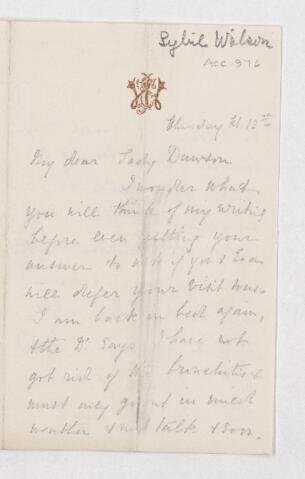 Sybil Watson
Acc. 976
Thursday 12th
My dear Lady Dawson
I wonder what
you will think of my writing
before even getting your
answer to ask if you & Eva
will defer your visit
I am back in bed again,
& the Dr. says I have not
got rid of the bronchitis &
must only go out in
weather & not talk & soon